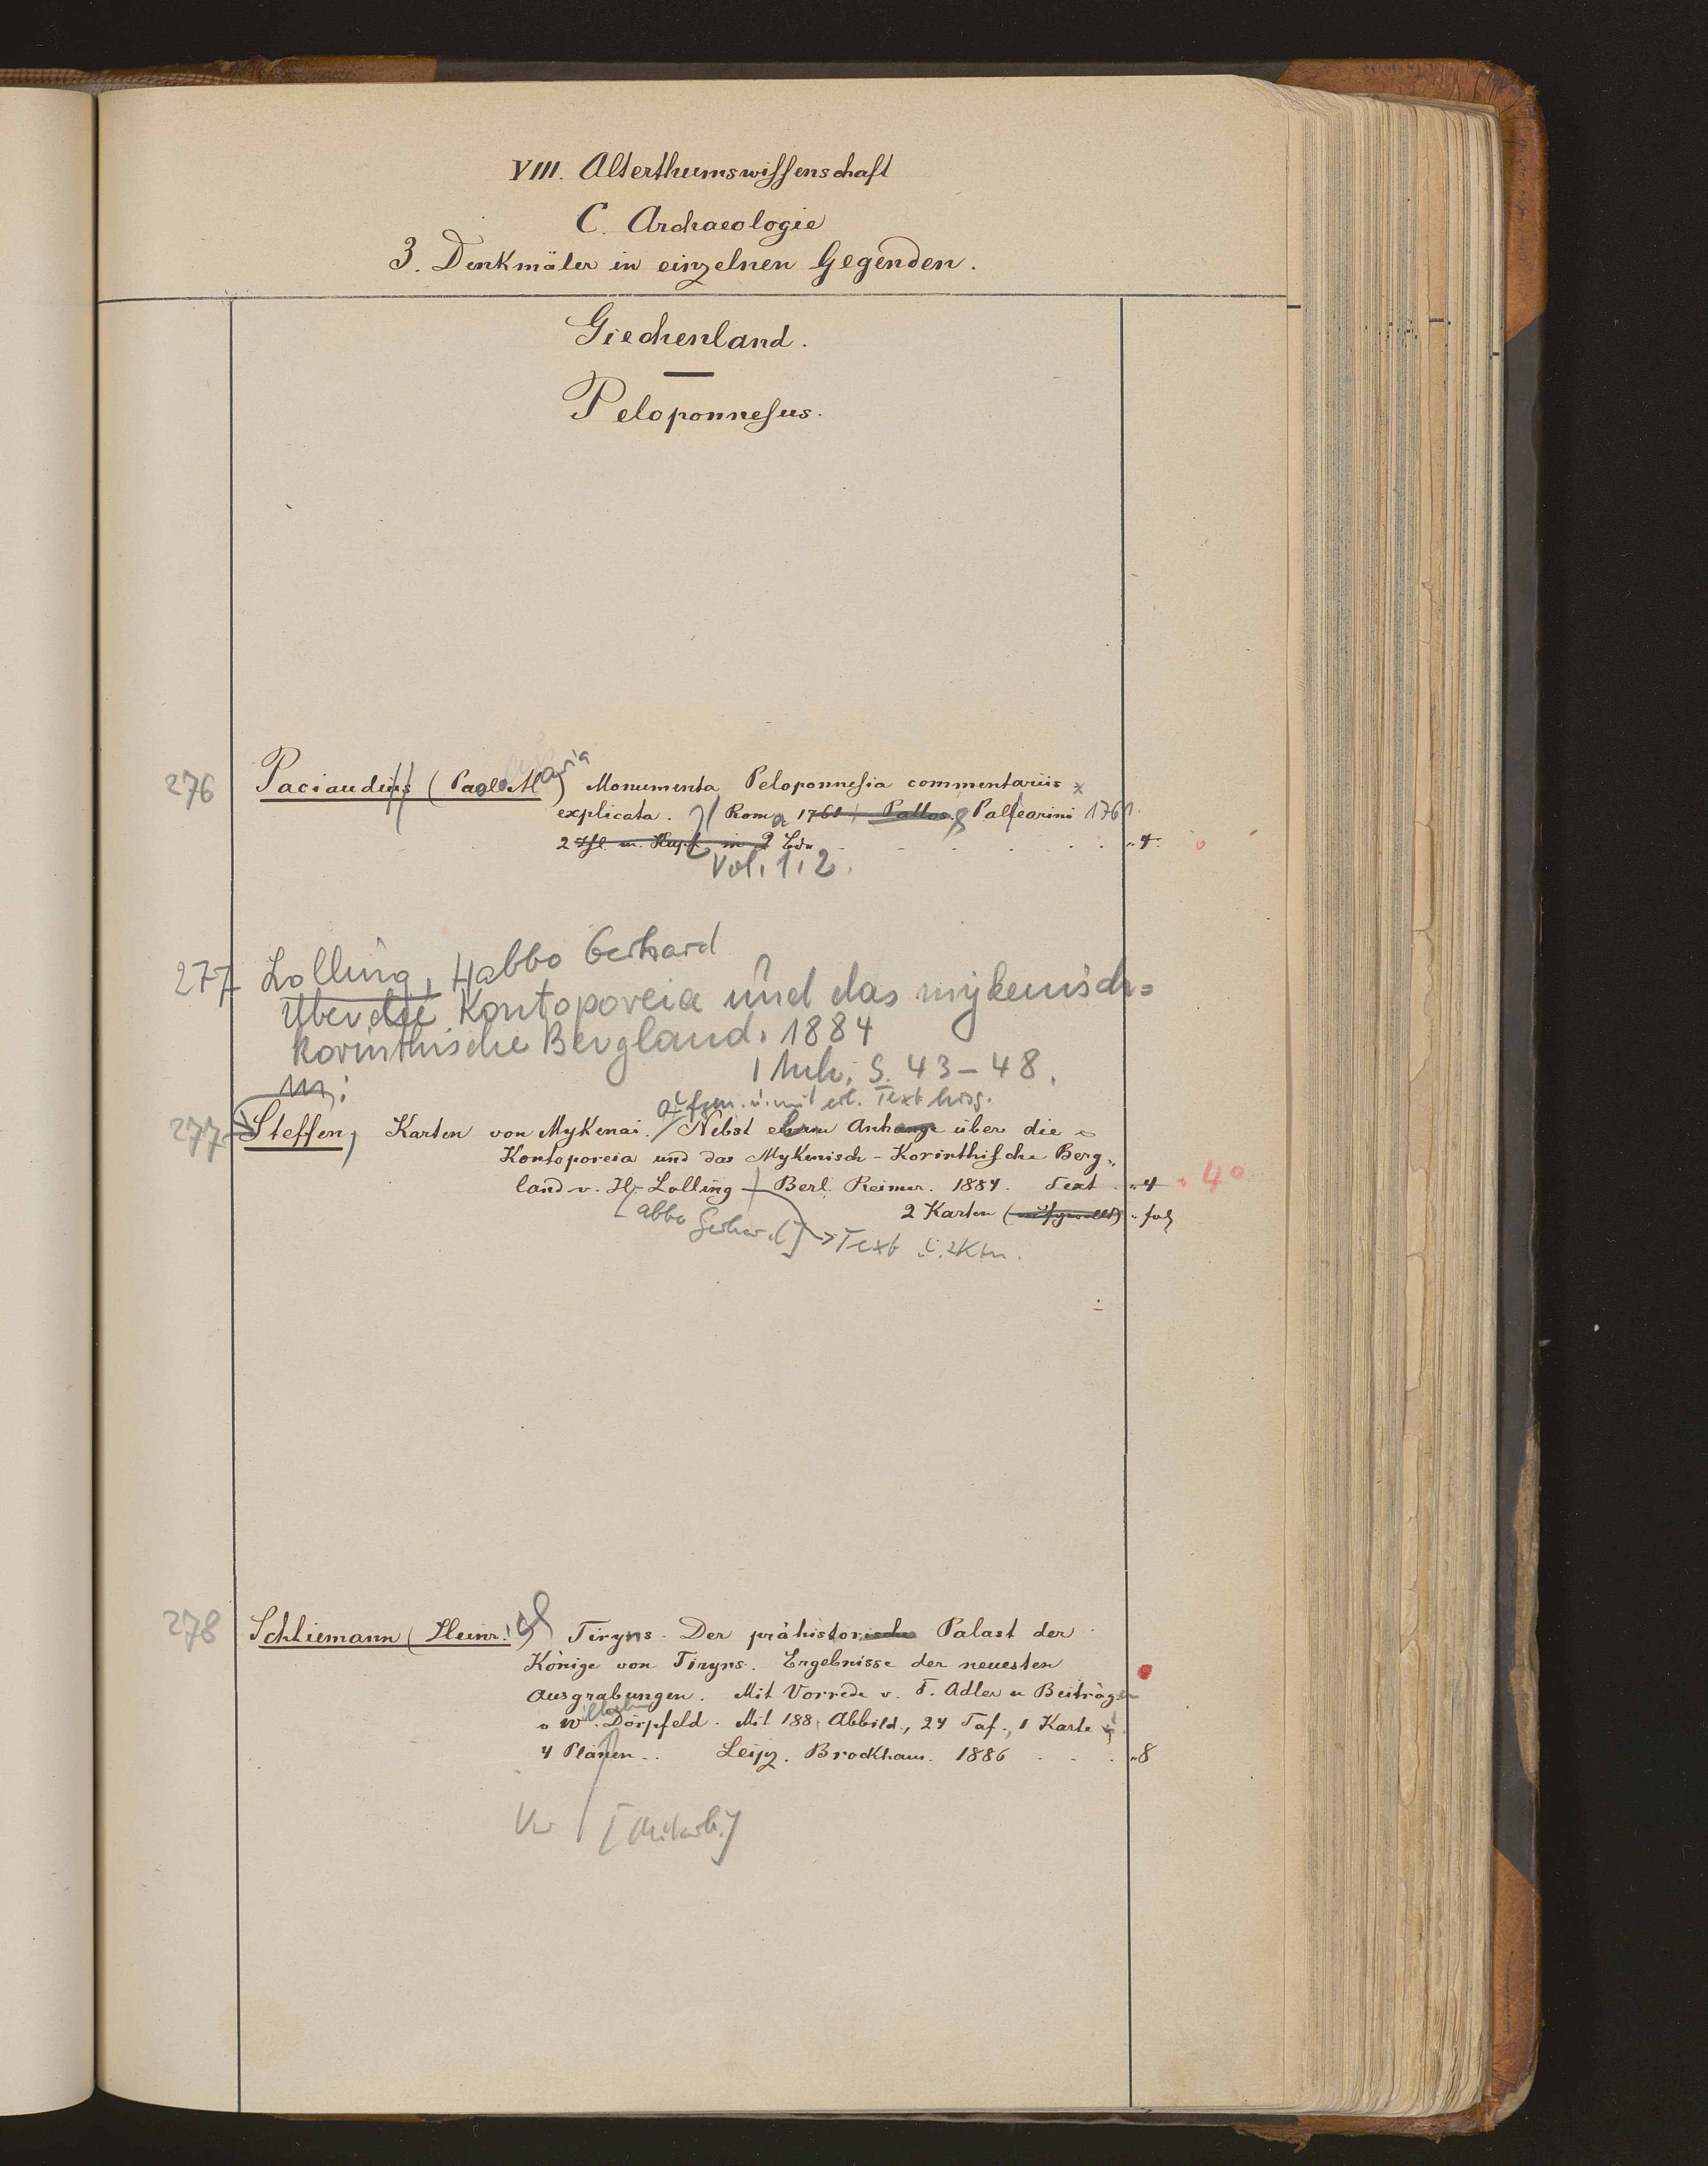 VIII. Alterthumswissenschaft
C. Archaeologie
3. Denkmäler in einzelnen Gegenden.
Giechenland.
Peloponnesus.
276 Paciaudius (Paolo Maria) Monumenta Peloponnesia commentariis
explicata. Roma 1761 Pallearini 1761
2 Thl. m. Kupf. in 2 Bdn "4.
Vol. 1.2.
277 Lolling, Habbo Gerhard
Über die Kontoporeia und das mykenisch=
korinthische Bergland. 1884
1 Anh. S. 43-48.
in:
aufgen. u. mit erl. Text hrsg.
277 Steffen, Karten von Mykenai. Nebst einem Anhange über die
Kontoporeia und das Mykenisch-Korinthische Berg-
land v. H. Lolling Berl. Reimer. 1884. Text "4 40
[abbo Gerhard] 2 Karten "fol
Text u. 2 Ktn.
278 Schliemann (Heinr.) Tiryns. Der prähistorische Palast der
Könige von Tiryns. Ergebnisse der neuesten
Ausgrabungen. Mit Vorrede v. F. Adler u Beiträgen
v W. Dörpfeld. Mit 188 Abbild., 24 Taf., 1 Karte u
4 Plänen.. Leipz. Brockhaus. 1886 "8
[Mitarb.]